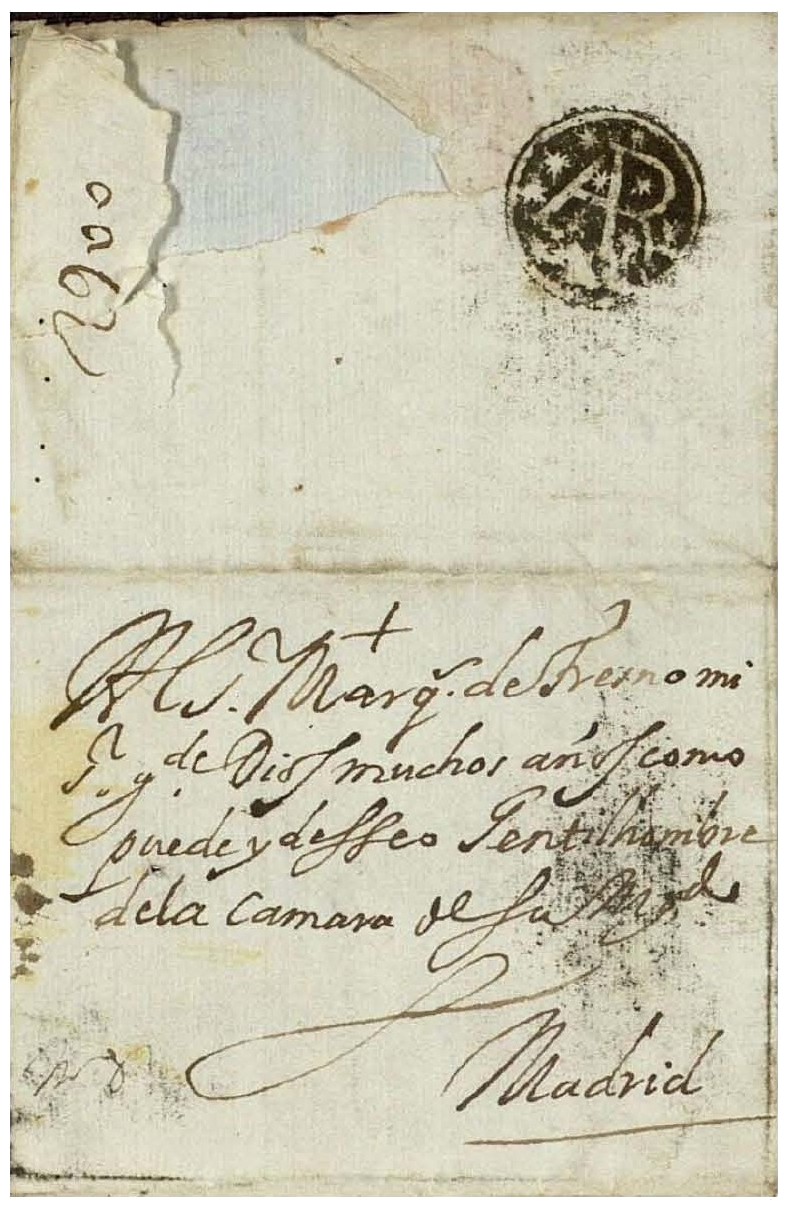 AR
+
Al S. Marq.s de Fresno mi
S.r g.de Dios muchos años como
puede y desseo Gentilhombre
de la Camara de su Mg.d
Madrid